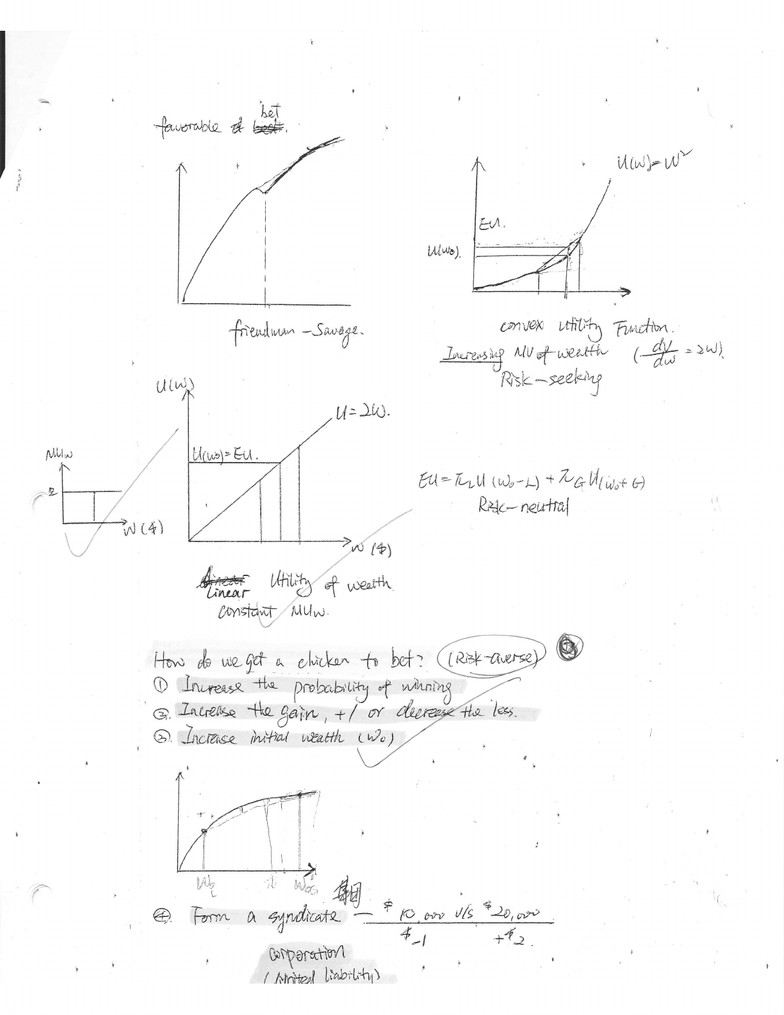 favorable bet.
friendman - Savage.
U(W)=W²
EU.
U(W₀).
convex Utility Function.
Increasing MU of wealth (dU/dW = 2W).
Risk-seeking
U(W)
U=2W.
U(W₀)=EU.
W ($)
MUw
2
W ($)
EU = π_L U (W₀-L) + π_G U(W₀+G)
Risk-neutral
Linear Utility of wealth
constant MUw.
How do we get a chicken to bet? (Risk-averse)
① Increase the probability of winning
② Increase the gain, +/ or decrease the loss.
③ Increase initial wealth (W₀)
④ Form a syndicate — $10,000 v/s $20,000
$-1 +$2.
corporation
(limited liability)